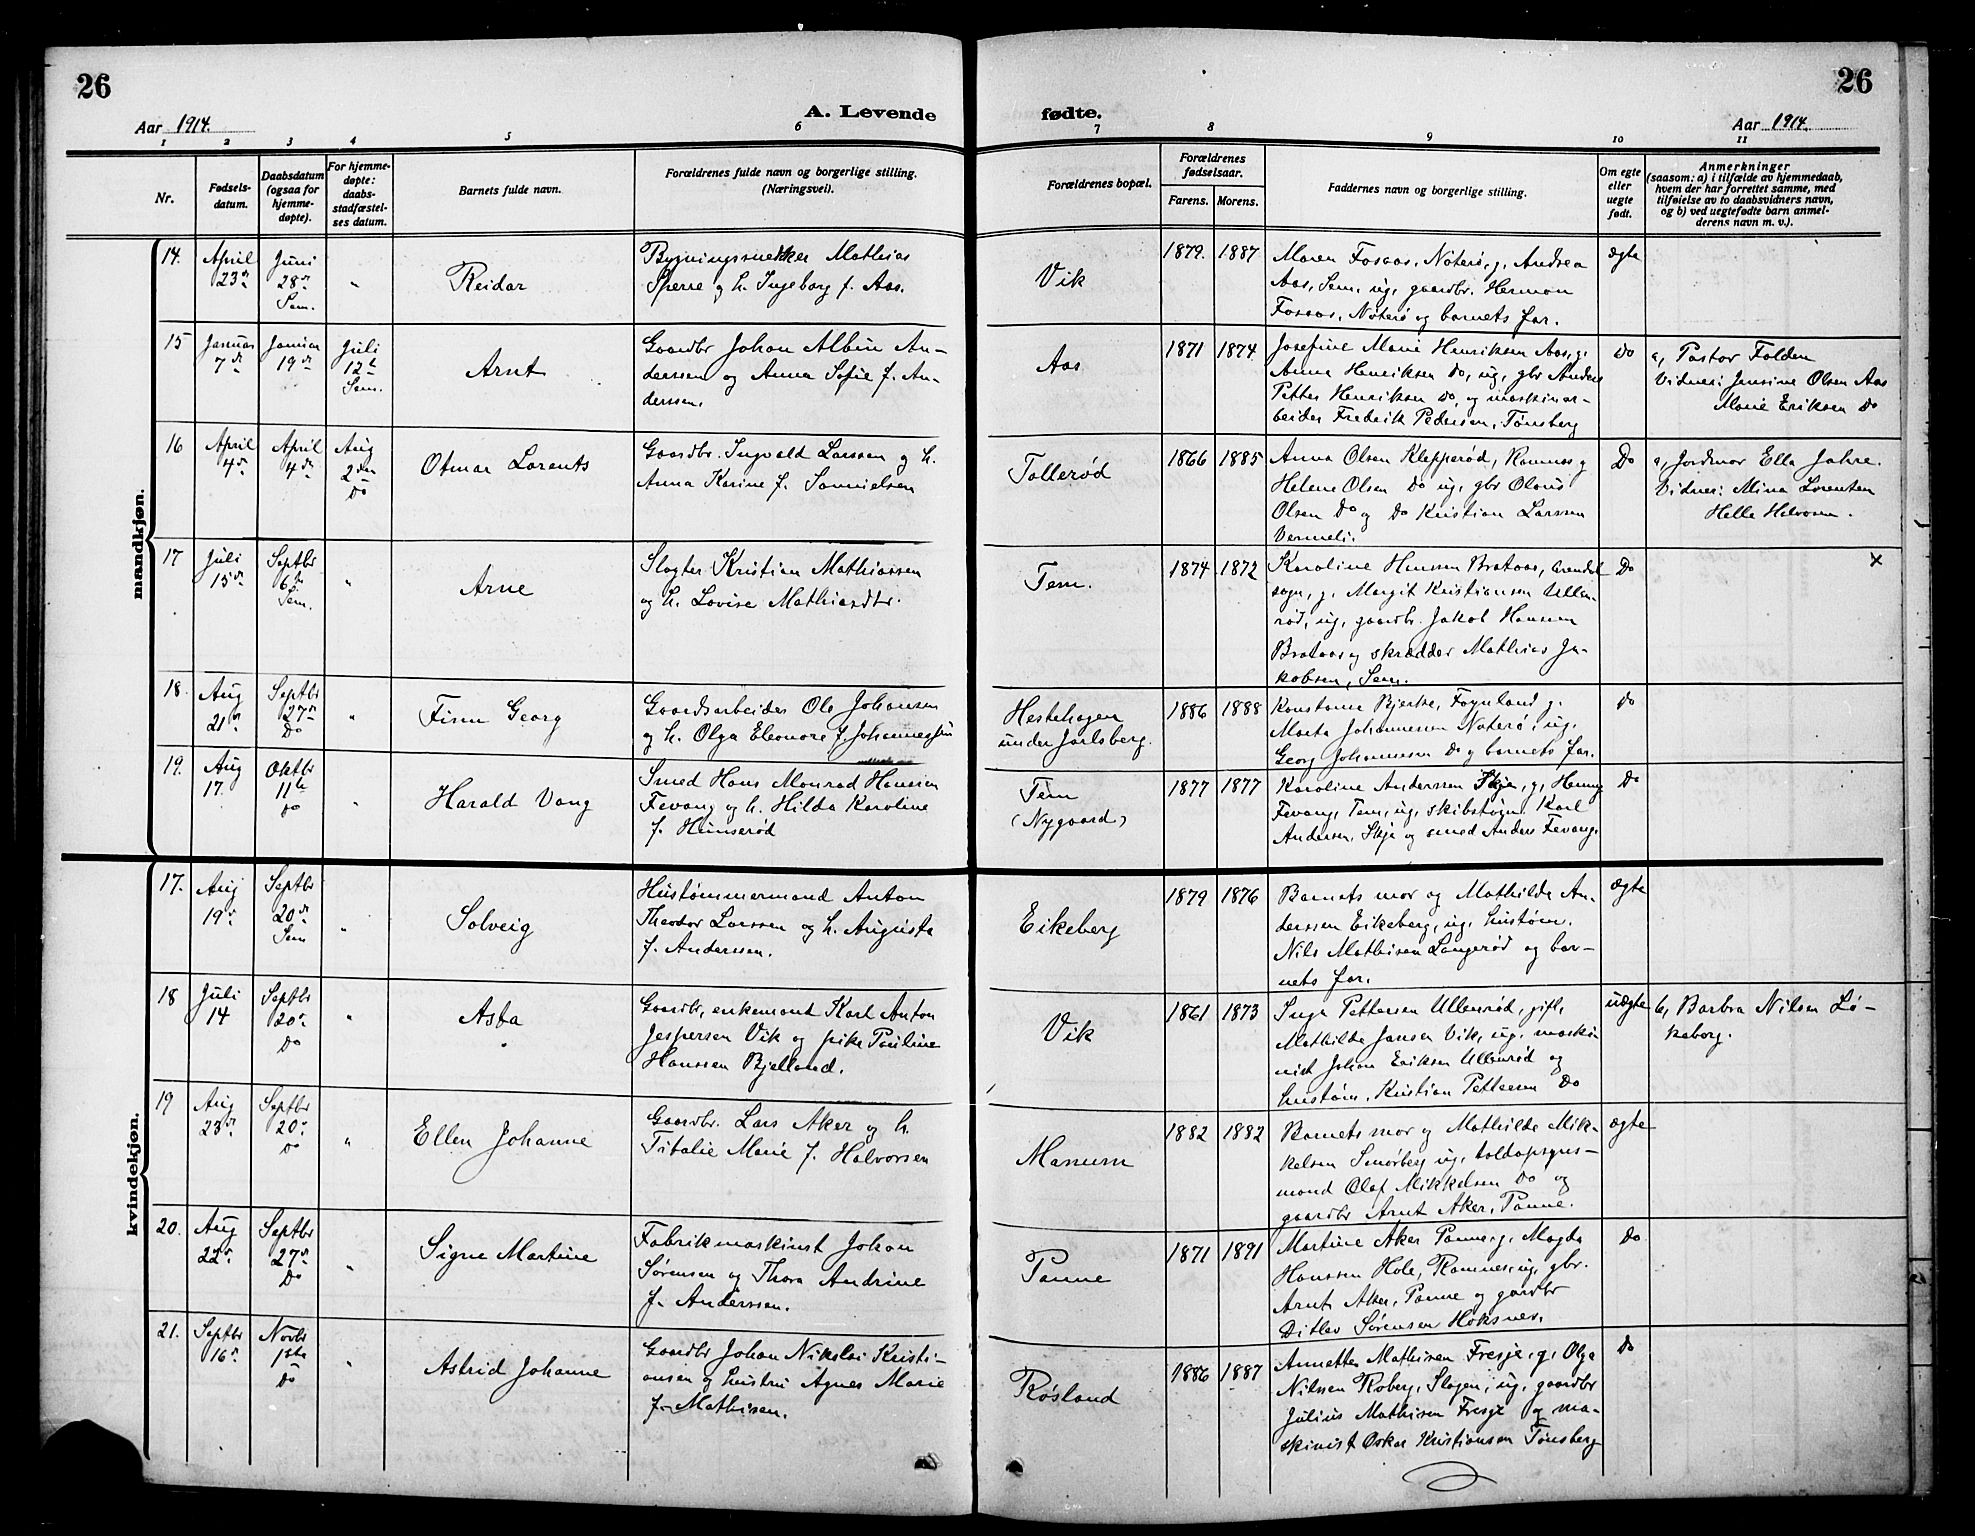 26
A. Levende fødte.
26
Aar 1914.
Aar 1914.
1 2 3 4 5 6 7 8 9 10 11
Nr.
Fødsels-
datum.
Daabsdatum
(ogsaa for
hjemme-
døpte).
For hjemme-
døpte:
daabs-
stadfæstel-
ses datum.
Barnets fulde navn.
Forældrenes fulde navn og borgerlige stilling.
(Næringsvei).
Forældrenes bopæl.
Forældrenes
fødselsaar.
Farens. Morens.
Faddernes navn og borgerlige stilling.
Om egte
eller
uegte
født.
Anmerkninger
(saasom: a) i tilfælde av hjemmedaab,
hvem der har forrettet samme, med
tilføielse av to daabsvidners navn,
og b) ved uegtefødte barn anmel-
derens navn m. v.).
mandkjøn.
14.
April
23de
Juni
28de
Sem.
"
Reidar
Bygningssnekker Mathias
Sperre og h. Ingeborg f. Aas.
Vik
1879. 1887
Maren Fosaas, Nøterø, g. Andrea
Aas, Sem, ug, gaardbr. Herman
Fosaas, Nøterø og barnets far.
ægte
15
Januar
7de
Januar
19de
Juli
12te
Sem.
Arnt
Gaardbr Johan Albin An-
derssen og Anna Sofie f. An-
derssen.
Aas
1871 1874
Josefine Marie Henriksen Aas, g.
Anna Henriksen Do, ug, gbr Anders
Petter Henriksen Do, og maskinar-
beider Fredrik Pedersen, Tønsberg
Do
a, Pastor Folden
Vidner: Jensine Olsen Aas
Marie Eriksen Do
16
April
4de
April
4de
Aug
2den
Do
Otmar Lorents
Gaardbr. Ingvald Larssen og h.
Anna Karine f. Samuelsen
Tollerød
1866 1885
Anna Olsen Klepperød, Ramnes g
Helene Olsen Do ug, gbr Olaus
Olsen Do og Do Kristian Larssen
Vermeli.
Do
a, Jordmor Ella Jahre.
Vidner: Mina Lorentsen
Helle Halvorsen.
17
Juli
15de
Septbr
6te
Sem.
"
Arne
Slagter Kristian Mathiassen
og h. Lovise Mathiasdtr.
Tem.
1874 1872
Karoline Hanssen Brataas, Arendal
sogn, g, Margit Kristiansen Ullen-
rød, ug, gaardbr. Jakob Hanssen
Brataas og skrædder Mathias Ja-
kobsen, Sem.
Do
x
18.
Aug
21de
Septbr
27de
Do
"
Finn Georg
Gaardsarbeider Ole Johansen
og h. Olga Eleonore f. Johannessen
Hestehagen
under Jarlsberg.
1886 1888
Konstanse Bjerke, Føynland g.
Marta Johannessen Nøterø, ug.
Georg Johannessen Do og barnets far.
Do
19.
Aug
17.
Oktbr
11te
Do
"
Harald Vang
Smed Hans Monrad Hanssen
Fevang og h. Hilda Karoline
f. Hunserød
Tem
(Nygaard)
1877 1877
Karoline Anderssen Skje, g, Henny
Fevang, Tem, ug, skibstøm. Karl
Andersen, Skje og smed Anders Fevang.
Do
kvindekjøn.
17.
Aug
19de
Septbr
20de
Sem
"
Solveig
Hustømmermand Anton
Theodor Larssen og h. Augusta
f. Anderssen.
Eikeberg
1879 1876
Barnets mor og Mathilda An-
derssen Eikeberg, ug, hustøm.
Nils Mathisen Langerød og bar-
nets far.
ægte
18
Juli
14
Septbr
20de
Do
"
Asta
Gaardbr, enkemand Karl Anton
Jespersen Vik og pike Pauline
Hanssen Bjelland.
Vik
1861 1873
Inga Pettersen Ullenrød, gift,
Mathilde Jansen Vik, ug, maski-
nist Johan Eriksen Ullenrød og
hustøm, Kristian Pettersen Do
uægte
b, Barbra Nilsen Lø-
keborg.
19
Aug
23de
Septbr
20de
Do
"
Ellen Johanne
Gaardbr. Lars Aker og h.
Titalie Marie f. Halvorsen
Manum
1882 1882
Barnets mor og Mathilde Mik-
kelsen Smørberg ug, toldopsyns-
mand Olaf Mikkelsen Do og
gaardbr Arnt Aker, Tanne.
ægte
20.
Aug
22de
Septbr
27de
Do
"
Signe Martine
Fabrikmaskinst Johan
Sørensen og Thora Andrine
f. Anderssen.
Tanne
1871 1891
Martine Aker Tanne g, Magda
Hanssen Hole, Ramnes, ug, gbr.
Arnt Aker, Tanne og gardbr
Ditlev Sørensen Høksnes.
Do
21.
Septbr
16de
Novbr
1ste
Do
"
Astrid Johanne
Gaardbr Johan Nikolai Kristi-
ansen og hustru Agnes Marie
f. Mathisen.
Røsland
1886 1887
Annette Mathisen Fresje, g, Olga
Nilssen Roberg, Slagen, ug, gaardbr
Julius Mathisen Fresje og ma-
skinist Oskar Kristiansen Tønsberg
Do